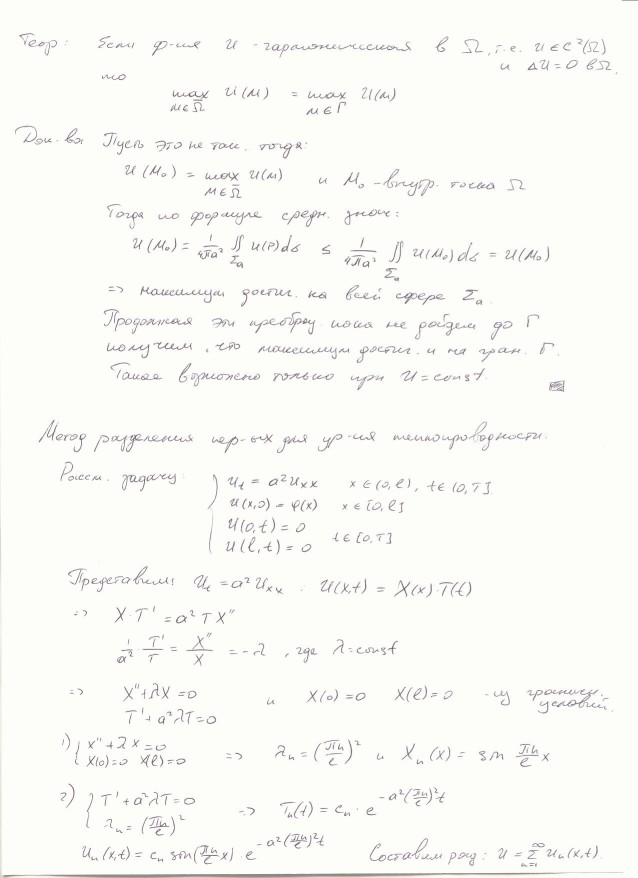 Теор: Если ф-ия u - гармоническая в Ω, т.е. u ∈ C²(Ω)
и Δu = 0 в Ω,
то
max u(M) = max u(M)
M∈Ω̄ M∈Γ
Док-во: Пусть это не так. тогда:
u(M₀) = max u(M) и M₀ - внутр. точка Ω
M∈Ω̄
Тогда по формуле средн. знач:
u(M₀) = 1/4πa² ∬ u(P)dσ ≤ 1/4πa² ∬ u(M₀)dσ = u(M₀)
Σₐ Σₐ
=> максимум достиг. на всей сфере Σₐ.
Продолжая эти преобраз. пока не дойдем до Γ
получим, что максимум достиг. и на гран. Γ.
Такое возможно только при u = const.
Метод разделения пер-ых для ур-ия теплопроводности.
Рассм. задачу:
uₜ = a²uₓₓ x ∈ (0, l), t ∈ (0, T]
u(x,0) = φ(x) x ∈ [0, l]
u(0,t) = 0
u(l,t) = 0 t ∈ [0, T]
Представим: uₜ = a²uₓₓ : u(x,t) = X(x)·T(t)
=> X·T' = a²TX''
1/a² · T'/T = X''/X = -λ, где λ = const
=> X'' + λX = 0 и X(0) = 0 X(l) = 0 - из гранич.
T' + a²λT = 0 условий.
1) { X'' + λX = 0
X(0) = 0 X(l) = 0 => λₙ = (πn/l)² и Xₙ(x) = sin πn/l x
2) { T' + a²λT = 0
λₙ = (πn/l)² => Tₙ(t) = cₙ · e^(-a²(πn/l)²t)
uₙ(x,t) = cₙ sin(πn/l x) · e^(-a²(πn/l)²t) Составим ряд: u = Σₙ₌₁^∞ uₙ(x,t).